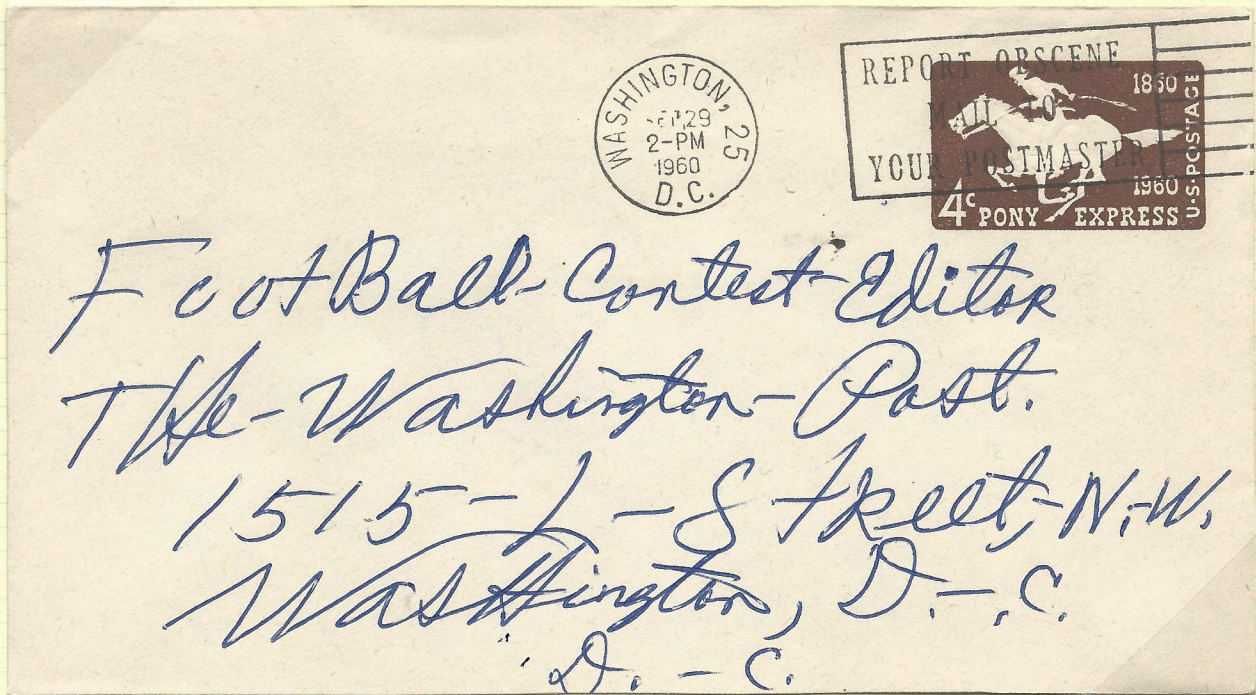 WASHINGTON, 25
SEP 29
2-PM
1960
D.C.
REPORT OBSCENE
MAIL TO
YOUR POSTMASTER
1860
1960
U.S. POSTAGE
4c PONY EXPRESS
FootBall - Contest - Editor
THe - Washington - Post.
1515 - L - Street, - N.-W.
WasHington, D.-.C.
D. - C.